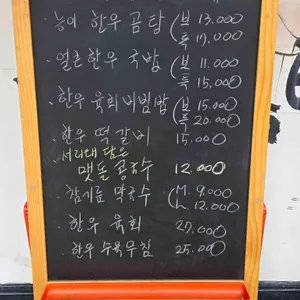 · 능이 한우 곰탕 (보 13.000
특 17.000
· 얼큰한우 국밥 (보 11.000
특 15.000
· 한우 육회비빔밥 (보 15.000
특 20.000
· 한우 떡갈비 15.000
서리태 담은
맷돌 콩국수 12.000
· 참기름 막국수 (M. 9.000
L. 12.000
· 한우 육회 27.000
· 한우 수육무침 25.000